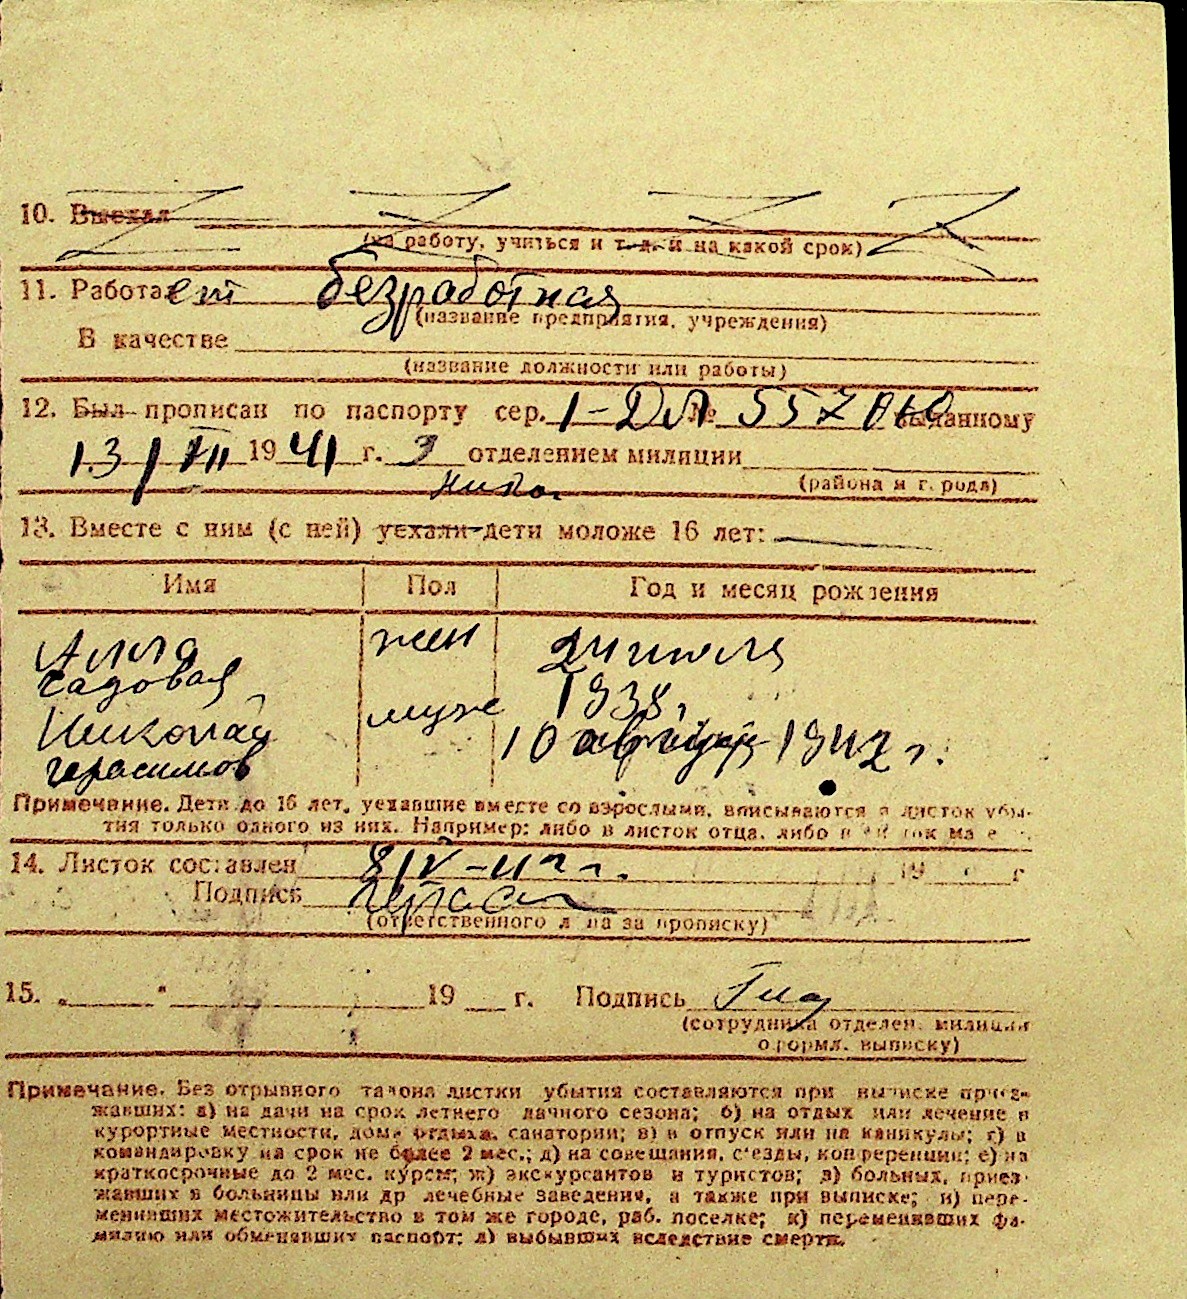 10. Выехал
(на работу, учиться и т. д. и на какой срок)
11. Работает безработная
(название предприятия, учреждения)
В качестве
(название должности или работы)
12. Был прописан по паспорту сер. 1-ДЛ № 557060 выданному
13/VII 1941 г. 3 отделением милиции
(района и города)
13. Вместе с ним (с ней) уехали дети моложе 16 лет:
Имя Пол Год и месяц рождения
Алла жен 24 июля
Садовая 1938,
Николай муж 10 августа 1942 г.
Герасимов
Примечание. Дети до 16 лет, уехавшие вместе со взрослыми, вписываются в листок убы-
тия только одного из них. Например: либо в листок отца, либо в листок ма
14. Листок составлен 8/IV-42 г. 19 г
Подпись
(ответственного лица за прописку)
15. „ " 19 г. Подпись
(сотрудника отделен. милиции
оформл. выписку)
Примечание. Без отрывного талона листки убытия составляются при выписке приез-
жавших: а) на дачи на срок летнего дачного сезона; б) на отдых или лечение в
курортные местности, дома отдыха, санатории; в) в отпуск или на каникулы; г) в
командировку на срок не более 2 мес.; д) на совещания, с'езды, конференции; е) на
краткосрочные до 2 мес. курсы; ж) экскурсантов и туристов; з) больных, приез-
жавших в больницы или др лечебные заведения, а также при выписке; и) пере-
менивших местожительство в том же городе, раб. поселке; к) переменивших фа-
милию или обменявших паспорт; л) выбывших вследствие смерти.